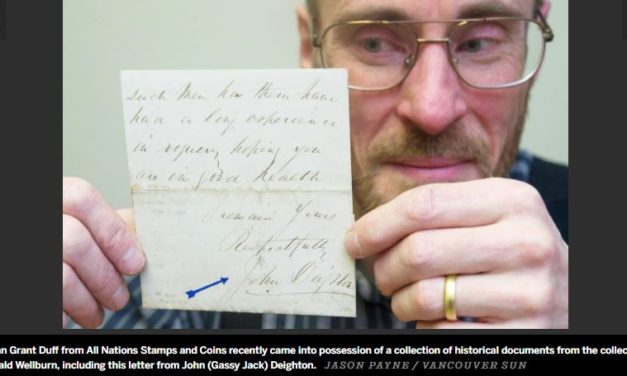 such Men has them have
had a long experience
in
hoping you
are in good health
I remain Yours
Respectfully
John Deighton
an Grant Duff from All Nations Stamps and Coins recently came into possession of a collection of historical documents from the collec
ald Wellburn, including this letter from John (Gassy Jack) Deighton. JASON PAYNE / VANCOUVER SUN